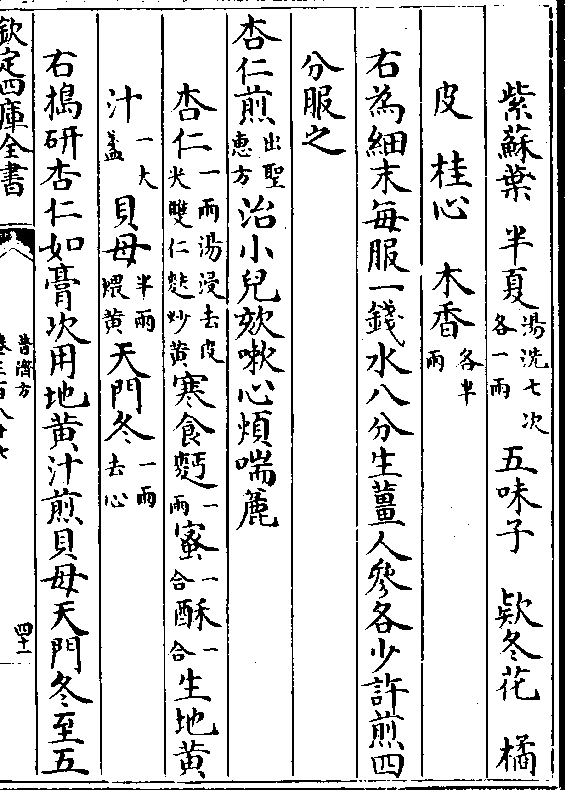 紫蘇葉　半夏湯洗七次各一兩　五味子　欵冬花　橘
皮　桂心　木香各半兩
右為細末每服一錢水八分生薑人參各少許煎四
分服之
杏仁煎出聖惠方治小兒欬嗽心煩喘麄
杏仁一兩湯浸去皮尖雙仁麩炒黄寒食麪一兩蜜一合酥一合生地黄
汁一大盞貝母半兩煨黄天門冬一兩去心
右搗研杏仁如膏次用地黄汁煎貝母天門冬至五
欽定四庫全書
普濟方
卷三百八十七
四十一